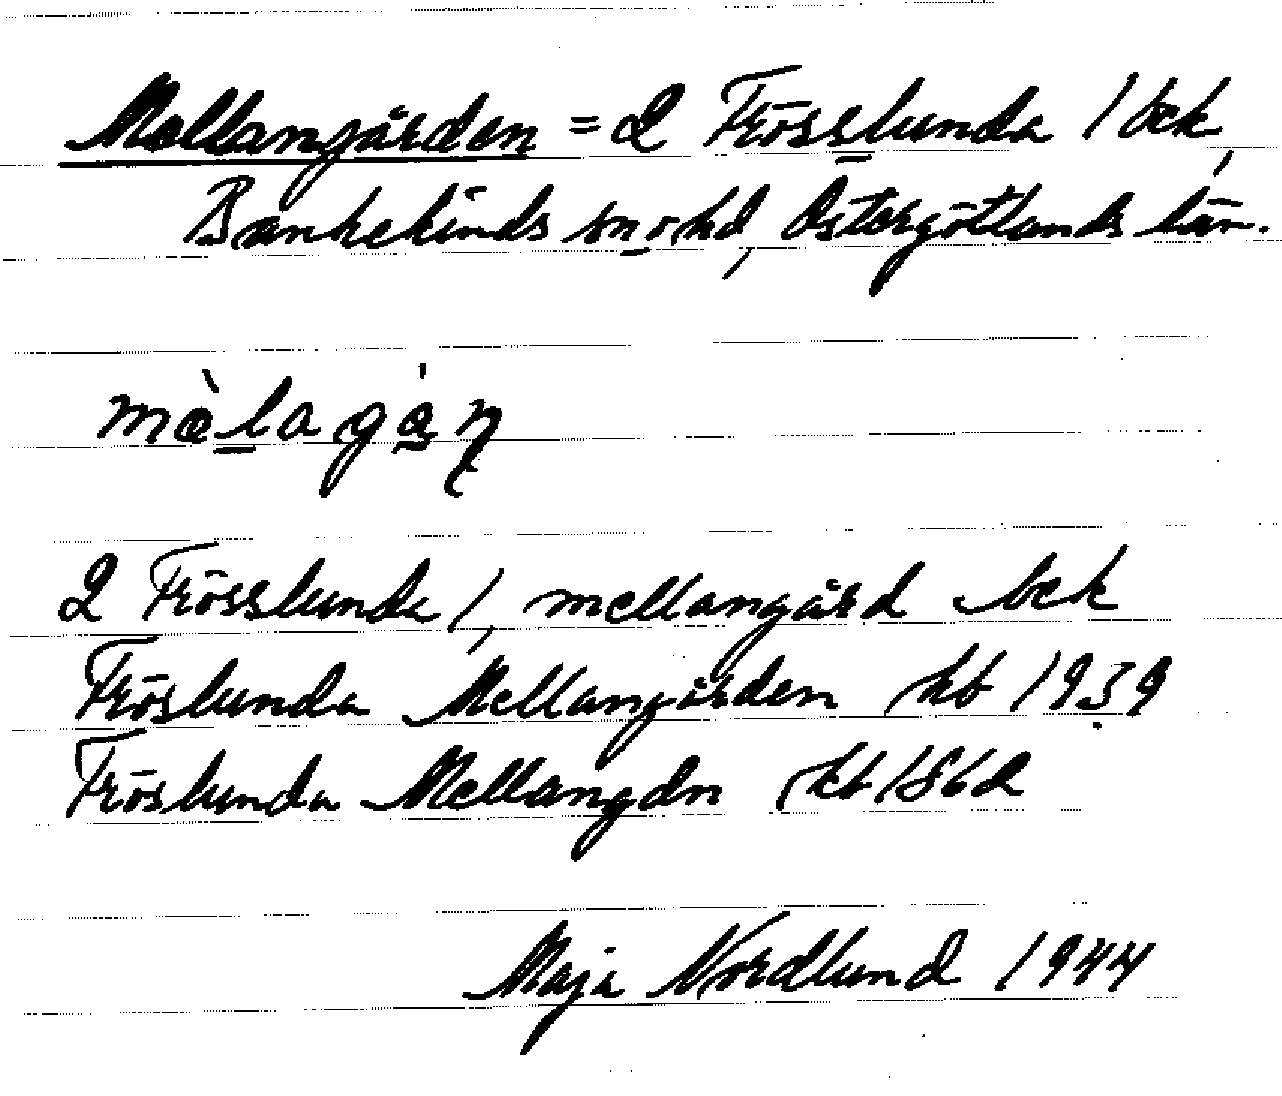 Mellangården = 2 Frösslunda / bck,
Bankekinds sn o hd, Östergötlands län.
mèlagán
2 Frösslunda /, mellangård bck
Fröslunda Mellangården kb 1939
Fröslunda Mellangdn kb 1862
Maja Nordlund 1944